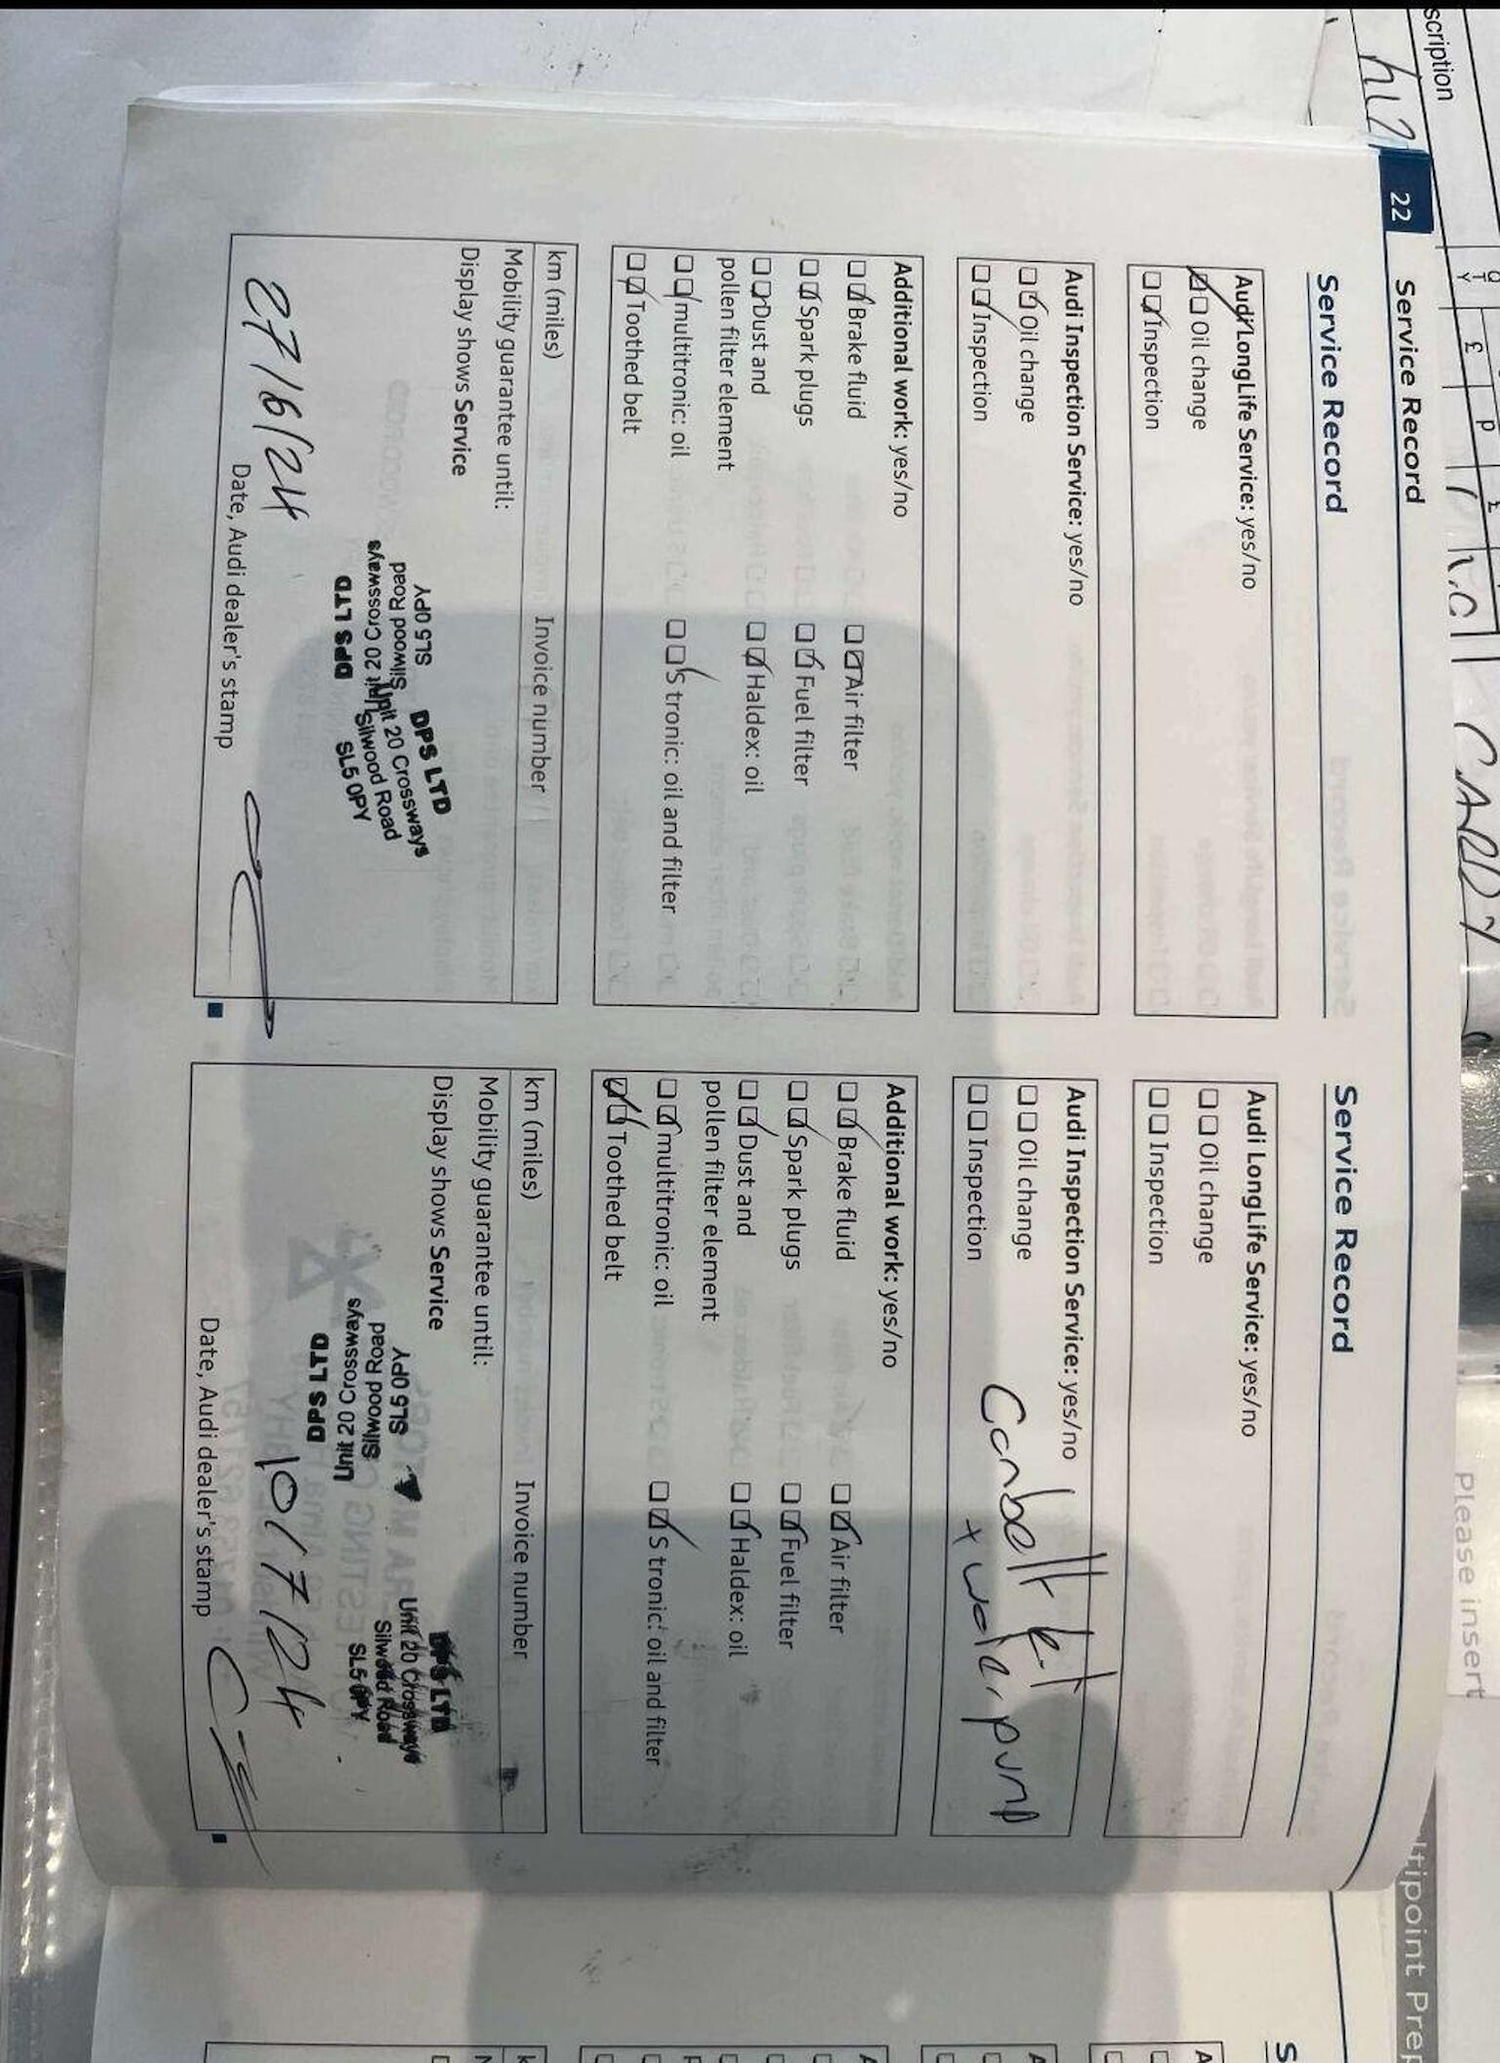 22 Service Record
Service Record
Audi LongLife Service: yes/no
Oil change
Inspection
Audi Inspection Service: yes/no
Oil change
Inspection
Additional work: yes/no
Brake fluid
Air filter
Spark plugs
Fuel filter
Dust and
pollen filter element
Haldex: oil
multitronic: oil
S tronic: oil and filter
Toothed belt
km (miles)
Invoice number
Mobility guarantee until:
Display shows Service
DPS LTD
Unit 20 Crossways
Silwood Road
SL5 0PY
DPS LTD
Unit 20 Crossways
Silwood Road
SL5 0PY
27/6/24
Date, Audi dealer's stamp
Service Record
Audi LongLife Service: yes/no
Oil change
Inspection
Audi Inspection Service: yes/no
Oil change
Inspection
Cambelt kit
+ water pump
Additional work: yes/no
Brake fluid
Air filter
Spark plugs
Fuel filter
Dust and
pollen filter element
Haldex: oil
multitronic: oil
S tronic: oil and filter
Toothed belt
km (miles)
Invoice number
Mobility guarantee until:
Display shows Service
DPS LTD
Unit 20 Crossways
Silwood Road
SL5 0PY
DPS LTD
Unit 20 Crossways
Silwood Road
SL5 0PY
10/7/24
Date, Audi dealer's stamp
scription
QTY
£
p
£
Please insert